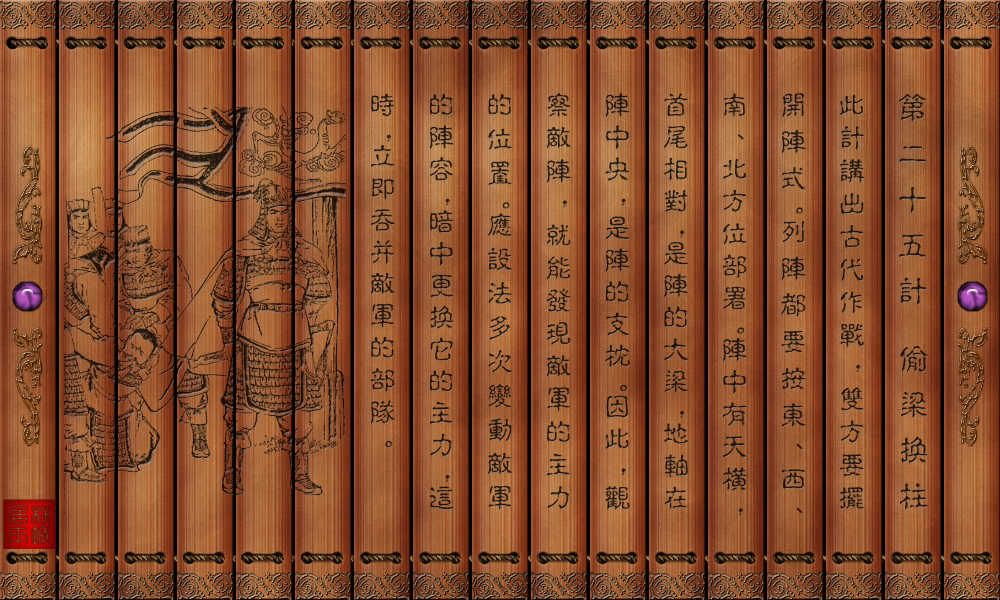 第二十五計 偷梁換柱
此計講出古代作戰，雙方要擺
開陣式。列陣都要按東、西、
南、北方位部署。陣中有天橫，
首尾相對，是陣的大梁，地軸在
陣中央，是陣的支枕。因此，觀
察敵陣，就能發現敵軍的主力
的位置。應設法多次變動敵軍
的陣容，暗中更換它的主力，這
時，立即吞并敵軍的部隊。